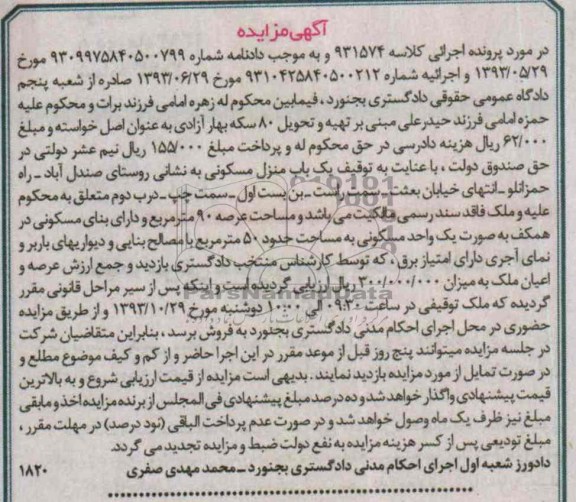 آگهی مزایده
در مورد پرونده اجرائی کلاسه ۹۳۱۵۷۴ و به موجب دادنامه شماره ۹۳۰۹۹۷۵۸۴۰۵۰۰۷۹۹ مورخ
۱۳۹۳/۰۵/۲۹ و اجرائیه شماره ۹۳۱۰۴۲۵۸۴۰۵۰۰۲۱۲ مورخ ۱۳۹۳/۰۶/۲۹ صادره از شعبه پنجم
دادگاه عمومی حقوقی دادگستری بجنورد ، فیمابین محکوم له زهره امامی فرزند برات و محکوم علیه
حمزه امامی فرزند حیدرعلی مبنی بر تهیه و تحویل ۸۰ سکه بهار آزادی به عنوان اصل خواسته و مبلغ
۶۲/۰۰۰ ریال هزینه دادرسی در حق محکوم له و پرداخت مبلغ ۱۵۵/۰۰۰ ریال نیم عشر دولتی در
حق صندوق دولت ، با عنایت به توقیف یک باب منزل مسکونی به نشانی روستای صندل آباد ـ راه
حمزانلو ـ انتهای خیابان بعثت ـ سمت راست ـ بن بست اول ـ سمت چپ ـ درب دوم متعلق به محکوم
علیه و ملک فاقد سند رسمی مالکیت می باشد و مساحت عرصه ۹۰ مترمربع و دارای بنای مسکونی در
همکف به صورت یک واحد مسکونی به مساحت حدود ۵۰ مترمربع با مصالح بنایی و دیوارهای باربر و
نمای آجری دارای امتیاز برق ، که توسط کارشناس منتخب دادگستری بازدید و جمع ارزش عرصه و
اعیان ملک به میزان ۳۰۰/۰۰۰/۰۰۰ ریال ارزیابی گردیده است و اینکه پس از سیر مراحل قانونی مقرر
گردیده که ملک توقیفی در ساعت ۰۹:۳۰ الی ۱۰:۰۰ دوشنبه مورخ ۱۳۹۳/۱۰/۲۹ و از طریق مزایده
حضوری در محل اجرای احکام مدنی دادگستری بجنورد به فروش برسد ، بنابراین متقاضیان شرکت
در جلسه مزایده میتوانند پنج روز قبل از موعد مقرر در این اجرا حاضر و از کم و کیف موضوع مطلع و
در صورت تمایل از مورد مزایده بازدید نمایند . بدیهی است مزایده از قیمت ارزیابی شروع و به بالاترین
قیمت پیشنهادی واگذار خواهد شد و ده درصد مبلغ پیشنهادی فی المجلس از برنده مزایده اخذ و مابقی
مبلغ نیز ظرف یک ماه وصول خواهد شد و در صورت عدم پرداخت الباقی (نود درصد) در مهلت مقرر ،
مبلغ تودیعی پس از کسر هزینه مزایده به نفع دولت ضبط و مزایده تجدید می گردد.
دادورز شعبه اول اجرای احکام مدنی دادگستری بجنورد ـ محمد مهدی صفری ۱۸۲۰
ParsNamadData